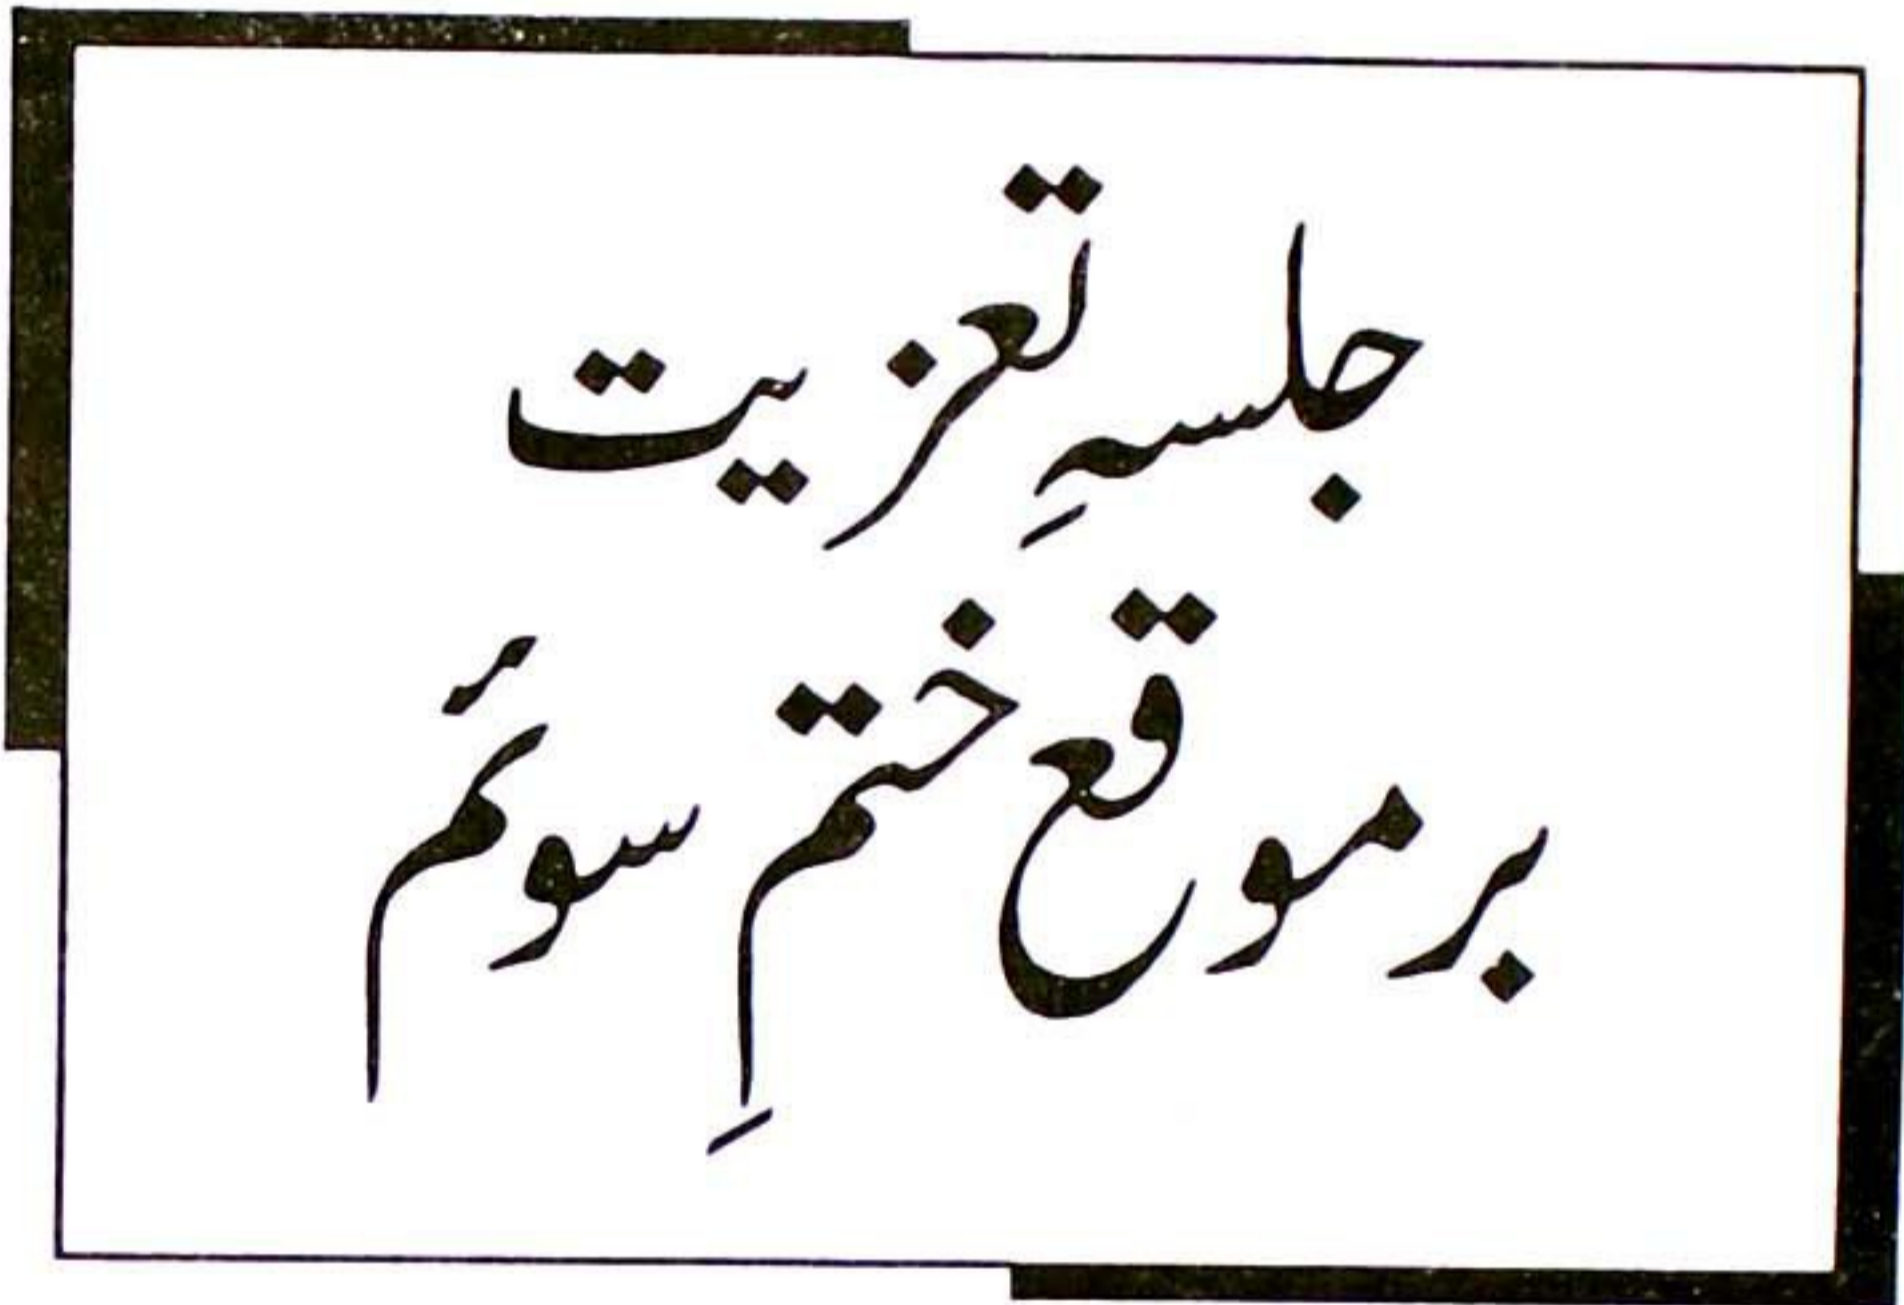 جلسہِ تعزیت
بر موقع ختمِ سوئم